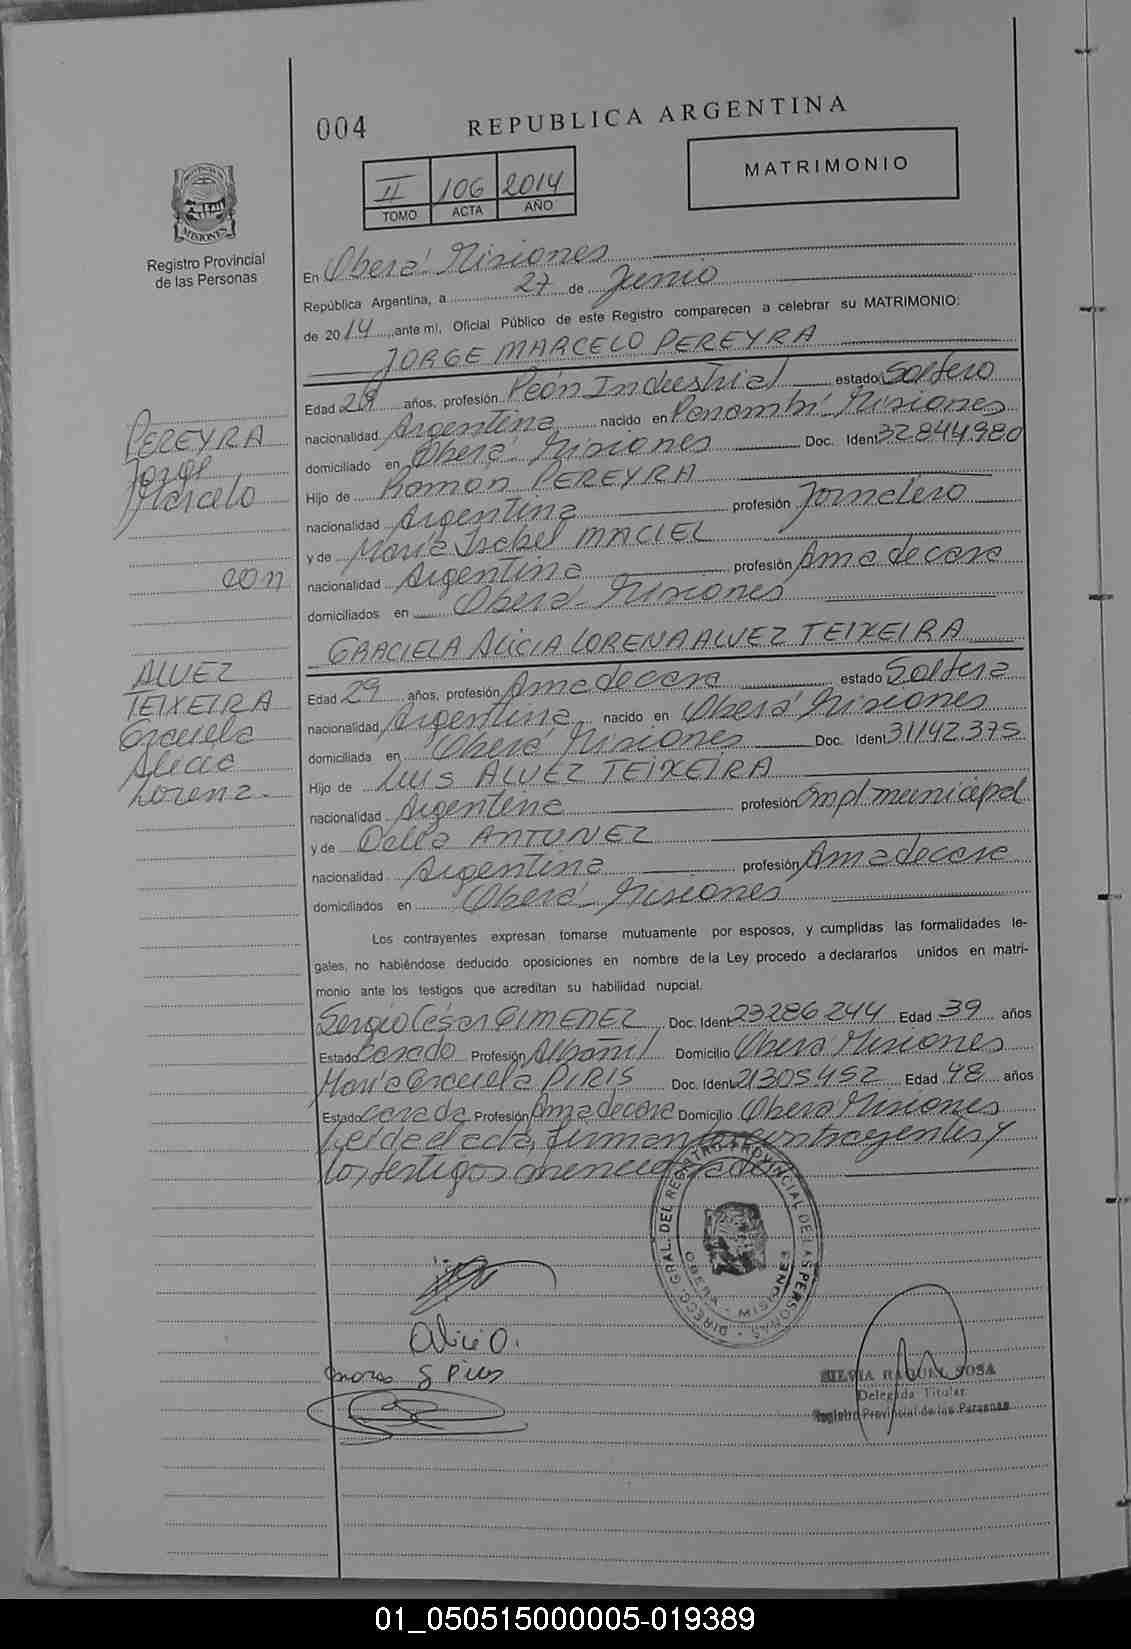 004
REPUBLICA ARGENTINA
MATRIMONIO
II 106 2014
TOMO ACTA AÑO
MISIONES
Registro Provincial
de las Personas
En Oberá - Misiones
República Argentina, a 27 de Junio
de 2014, ante mí, Oficial Público de este Registro comparecen a celebrar su MATRIMONIO:
JORGE MARCELO PEREYRA
Edad 28 años, profesión Peón Industrial estado Soltero
nacionalidad Argentina nacido en Panambí - Misiones
domiciliado en Oberá - Misiones Doc. Ident 32844980
Hijo de Ramon PEREYRA
nacionalidad Argentina profesión Jornalero
y de María Isabel MACIEL
nacionalidad Argentina profesión Ama de casa
domiciliados en Oberá - Misiones
PEREYRA
Jorge
Marcelo
con
ALVEZ
TEIXEIRA
Graciela
Alicia
Lorena.
GRACIELA ALICIA LORENA ALVEZ TEIXEIRA
Edad 29 años, profesión Ama de casa estado Soltera
nacionalidad Argentina nacido en Oberá Misiones
domiciliada en Oberá Misiones Doc. Ident 31142.375
Hijo de LUIS ALVEZ TEIXEIRA
nacionalidad Argentina profesión Empl municipal
y de Delia ANTUNEZ
nacionalidad Argentina profesión Ama de casa
domiciliados en Oberá - Misiones
Los contrayentes expresan tomarse mutuamente por esposos, y cumplidas las formalidades le-
gales, no habiéndose deducido oposiciones en nombre de la Ley procedo a declararlos unidos en matri-
monio ante los testigos que acreditan su habilidad nupcial.
Sergio César GIMENEZ Doc. Ident 23286244 Edad 39 años
Estado Casado Profesión Albañil Domicilio Oberá Misiones
María Graciela PIRIS Doc. Ident 21305452 Edad 48 años
Estado casada Profesión Ama de casa Domicilio Oberá Misiones
Leída el acta, firman los contrayentes y
los testigos mencionados
DIRECC. GRAL. DEL REGISTRO PROVINCIAL DE LAS PERSONAS
OBERA - MISIONES
Alicia.
SILVIA RAQUEL SOSA
Delegada Titular
Registro Provincial de las Personas
01_050515000005-019389